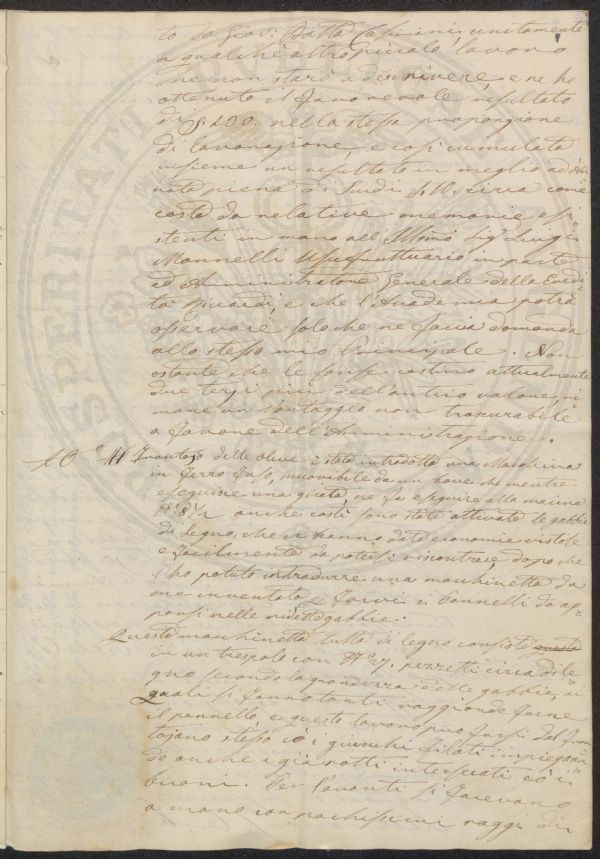 to da Giov: Batta unitamente
a qualche altro piccolo lavoro
che non starò a descrivere, e ne ho
ottenuto il favorevole resultato
di nella stessa proporzione
di lavorazione, e così cumulata
insieme un resultato in meglio ad
circa come
costa da relative memorie esi
stenti in mano all' Illmo Sig Luigi
Mannelli Usufruttuario in parte
ed Amministratore Generale della Eredi
tà Ricardi, e che l'Accademia potrà
osservare solo che ne faccia domanda
allo stesso mio Principale. Non
ostante che le fonse costino attualmente
due terzi più dell'antico valore, ri
mane un vantaggio non trascurabile
a favore dell'Amministrazione.
10° Al Frantojo delle Olive è stata introdotta una Macchina
in Ferro fuso, muovibile da un bove che mentre
eseguisce una girata, ne fa eseguire alla macina
anche costì sono state attivate le gabbie
di Legno, che ci hanno dato economie vistose
e facilmente da potersi riscontrare, dopo che
ho potuto introdurre una macchinetta da
me inventata per farvi i Pannelli da ap
porsi nelle ridette gabbie.
Questa macchinetta tutta di legno consiste
in un trespolo con N° 27. pezzetti circa di le
gno secondo la grandezza delle gabbie, ai
quali si fanno tanti raggi onde farne
il pannello, e questo lavoro può farsi dal Fran
tojano stesso co' i giunchi filati impiegan
do anche i già rotti intersecati co' i
buoni. Per l'avanti si facevano
a mano con pochissimi raggi di